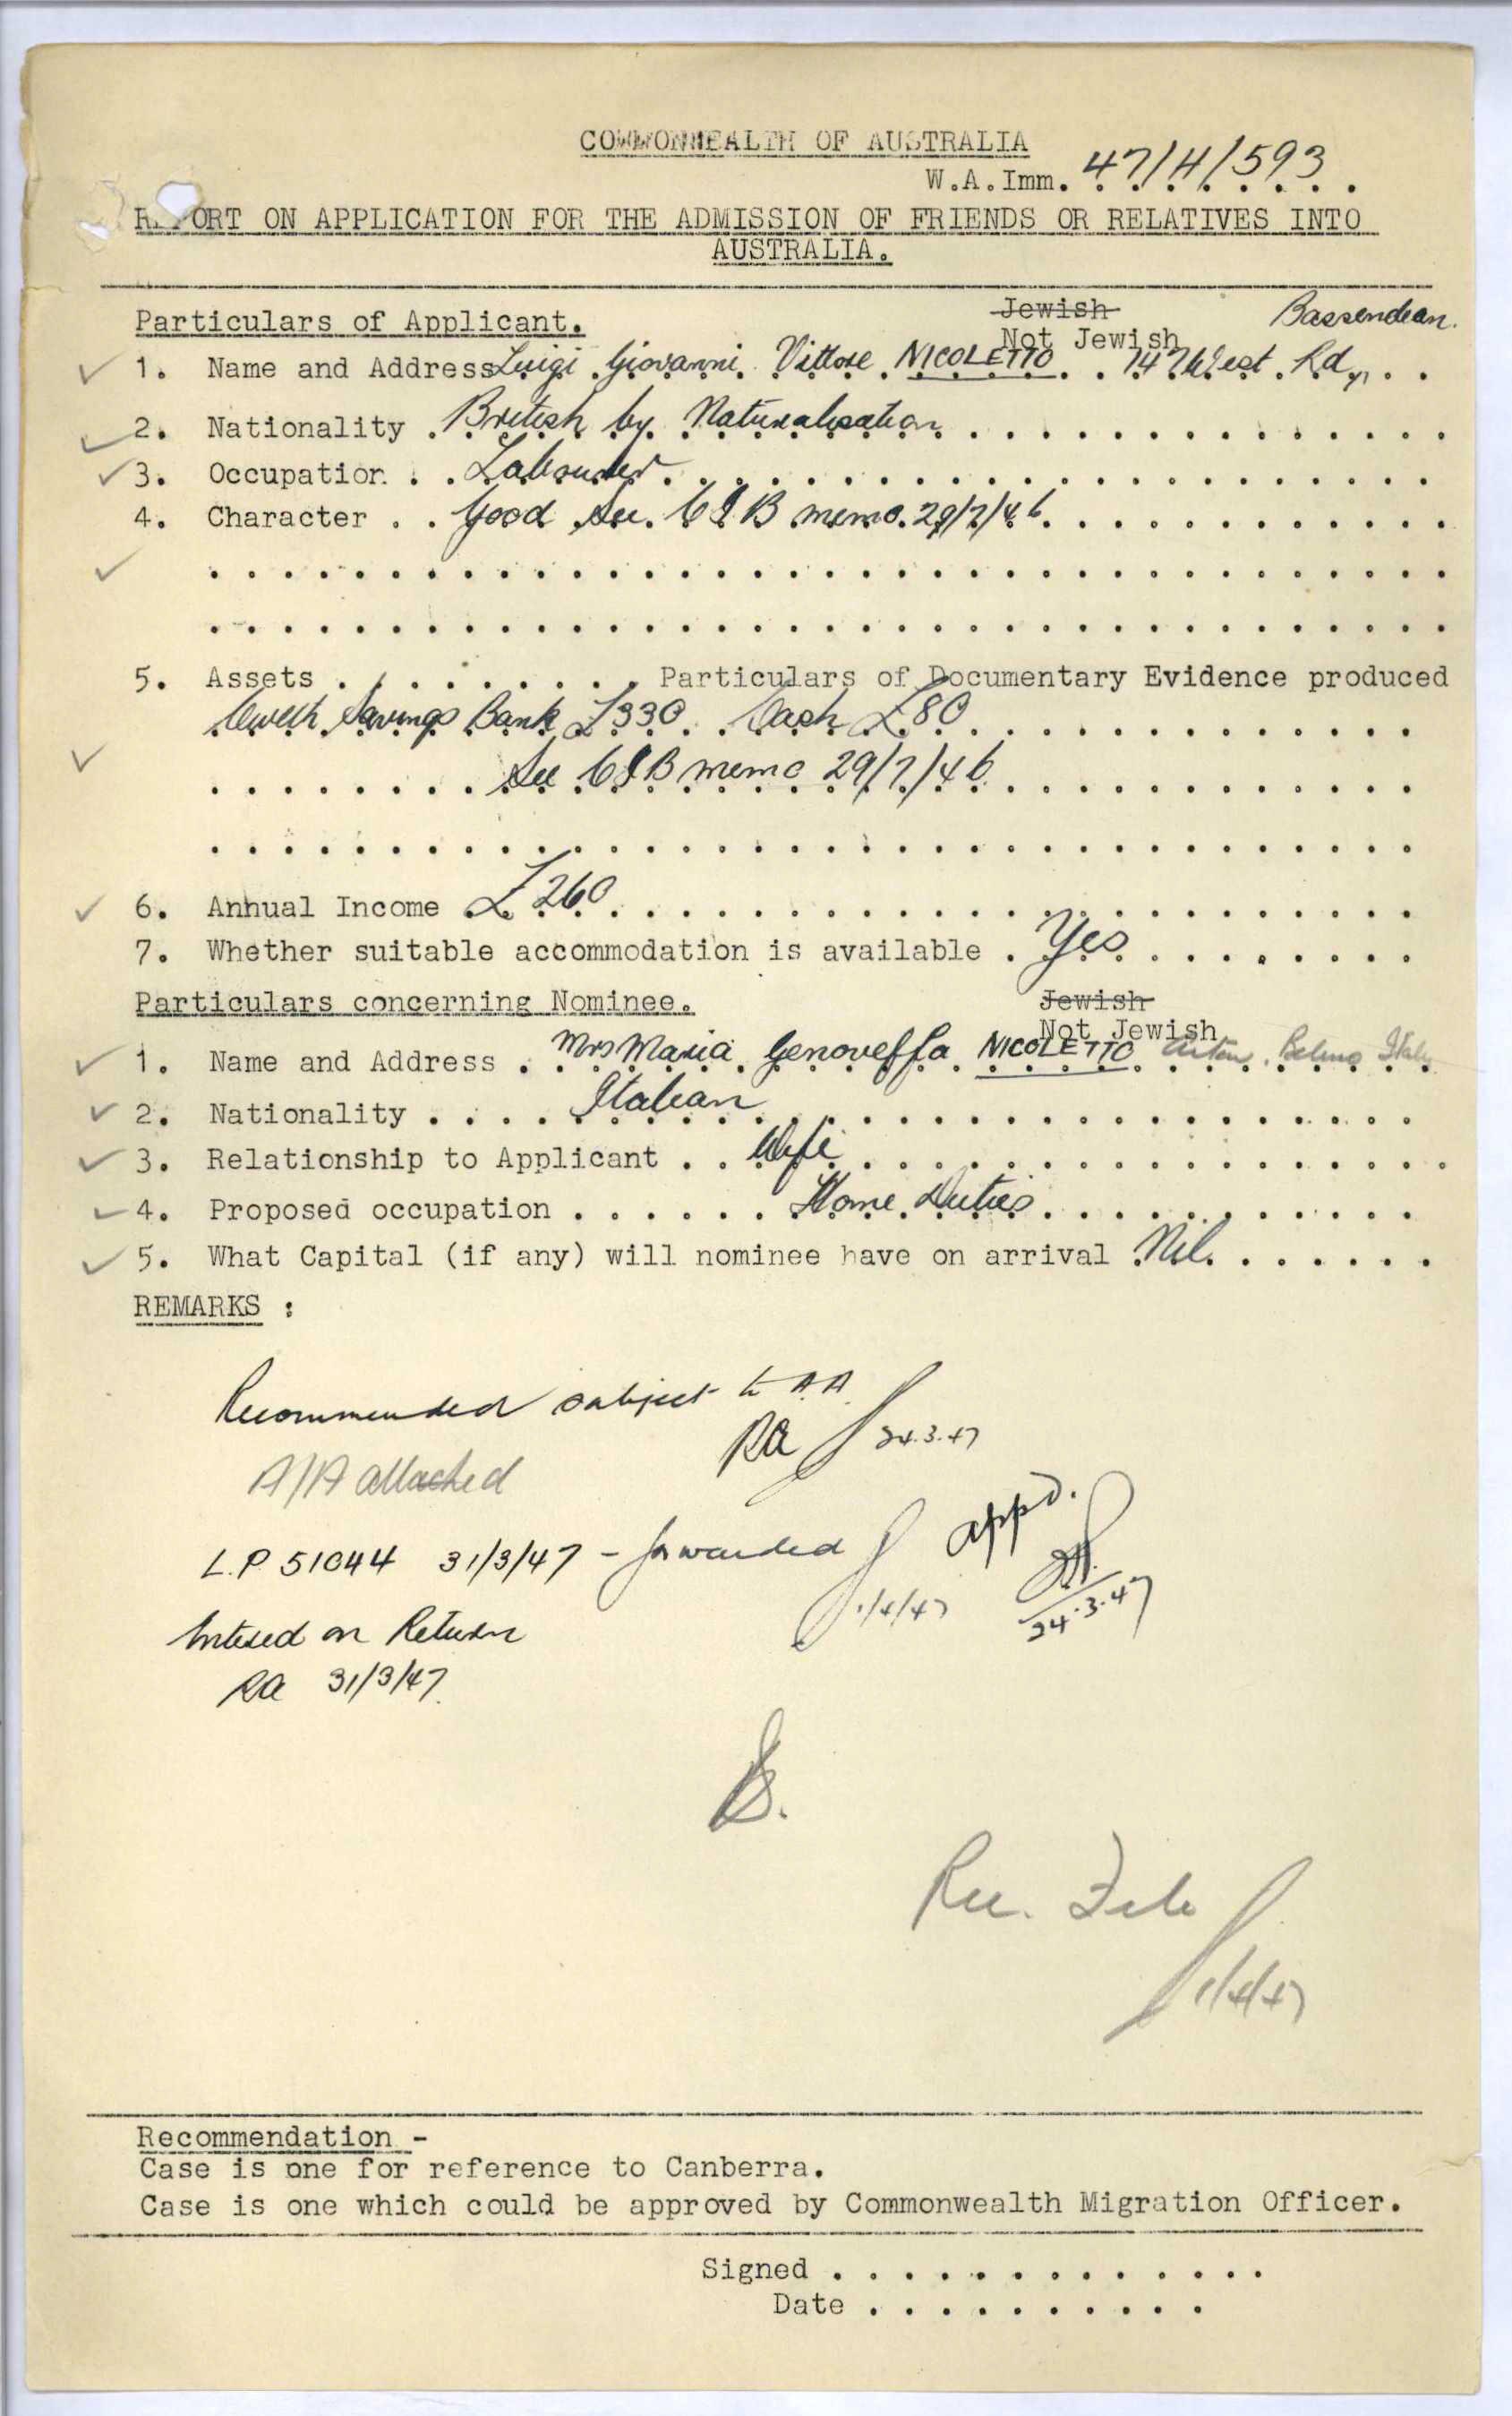 COMMONWEALTH OF AUSTRALIA
W.A.Imm. 47/4/593
REPORT ON APPLICATION FOR THE ADMISSION OF FRIENDS OR RELATIVES INTO
AUSTRALIA.
Particulars of Applicant. Jewish Bassendean.
Not Jewish
1. Name and Address Luigi Giovanni Vittore NICOLETTO 147 West Rd,
2. Nationality British by Naturalisation
3. Occupation Labourer
4. Character Good See CIB memo. 29/7/46
5. Assets Particulars of Documentary Evidence produced
Cwelth Savings Bank £330 Cash £80
See CIB memo 29/7/46
6. Annual Income £260
7. Whether suitable accommodation is available Yes
Particulars concerning Nominee. Jewish
Not Jewish
1. Name and Address Mrs Maria Genoveffa NICOLETTO Italy
2. Nationality Italian
3. Relationship to Applicant Wife
4. Proposed occupation Home Duties
5. What Capital (if any) will nominee have on arrival Nil.
REMARKS :
Recommended subject to A.A.
RA 24.3.47
A/A attached
appd.
L.P 51044 31/3/47 - forwarded
1/4/47
24.3.47
Entered on Return
RA 31/3/47
Rec. File
1/4/47
Recommendation -
Case is one for reference to Canberra.
Case is one which could be approved by Commonwealth Migration Officer.
Signed . . . . . . . . . . . . .
Date . . . . . . . . . .